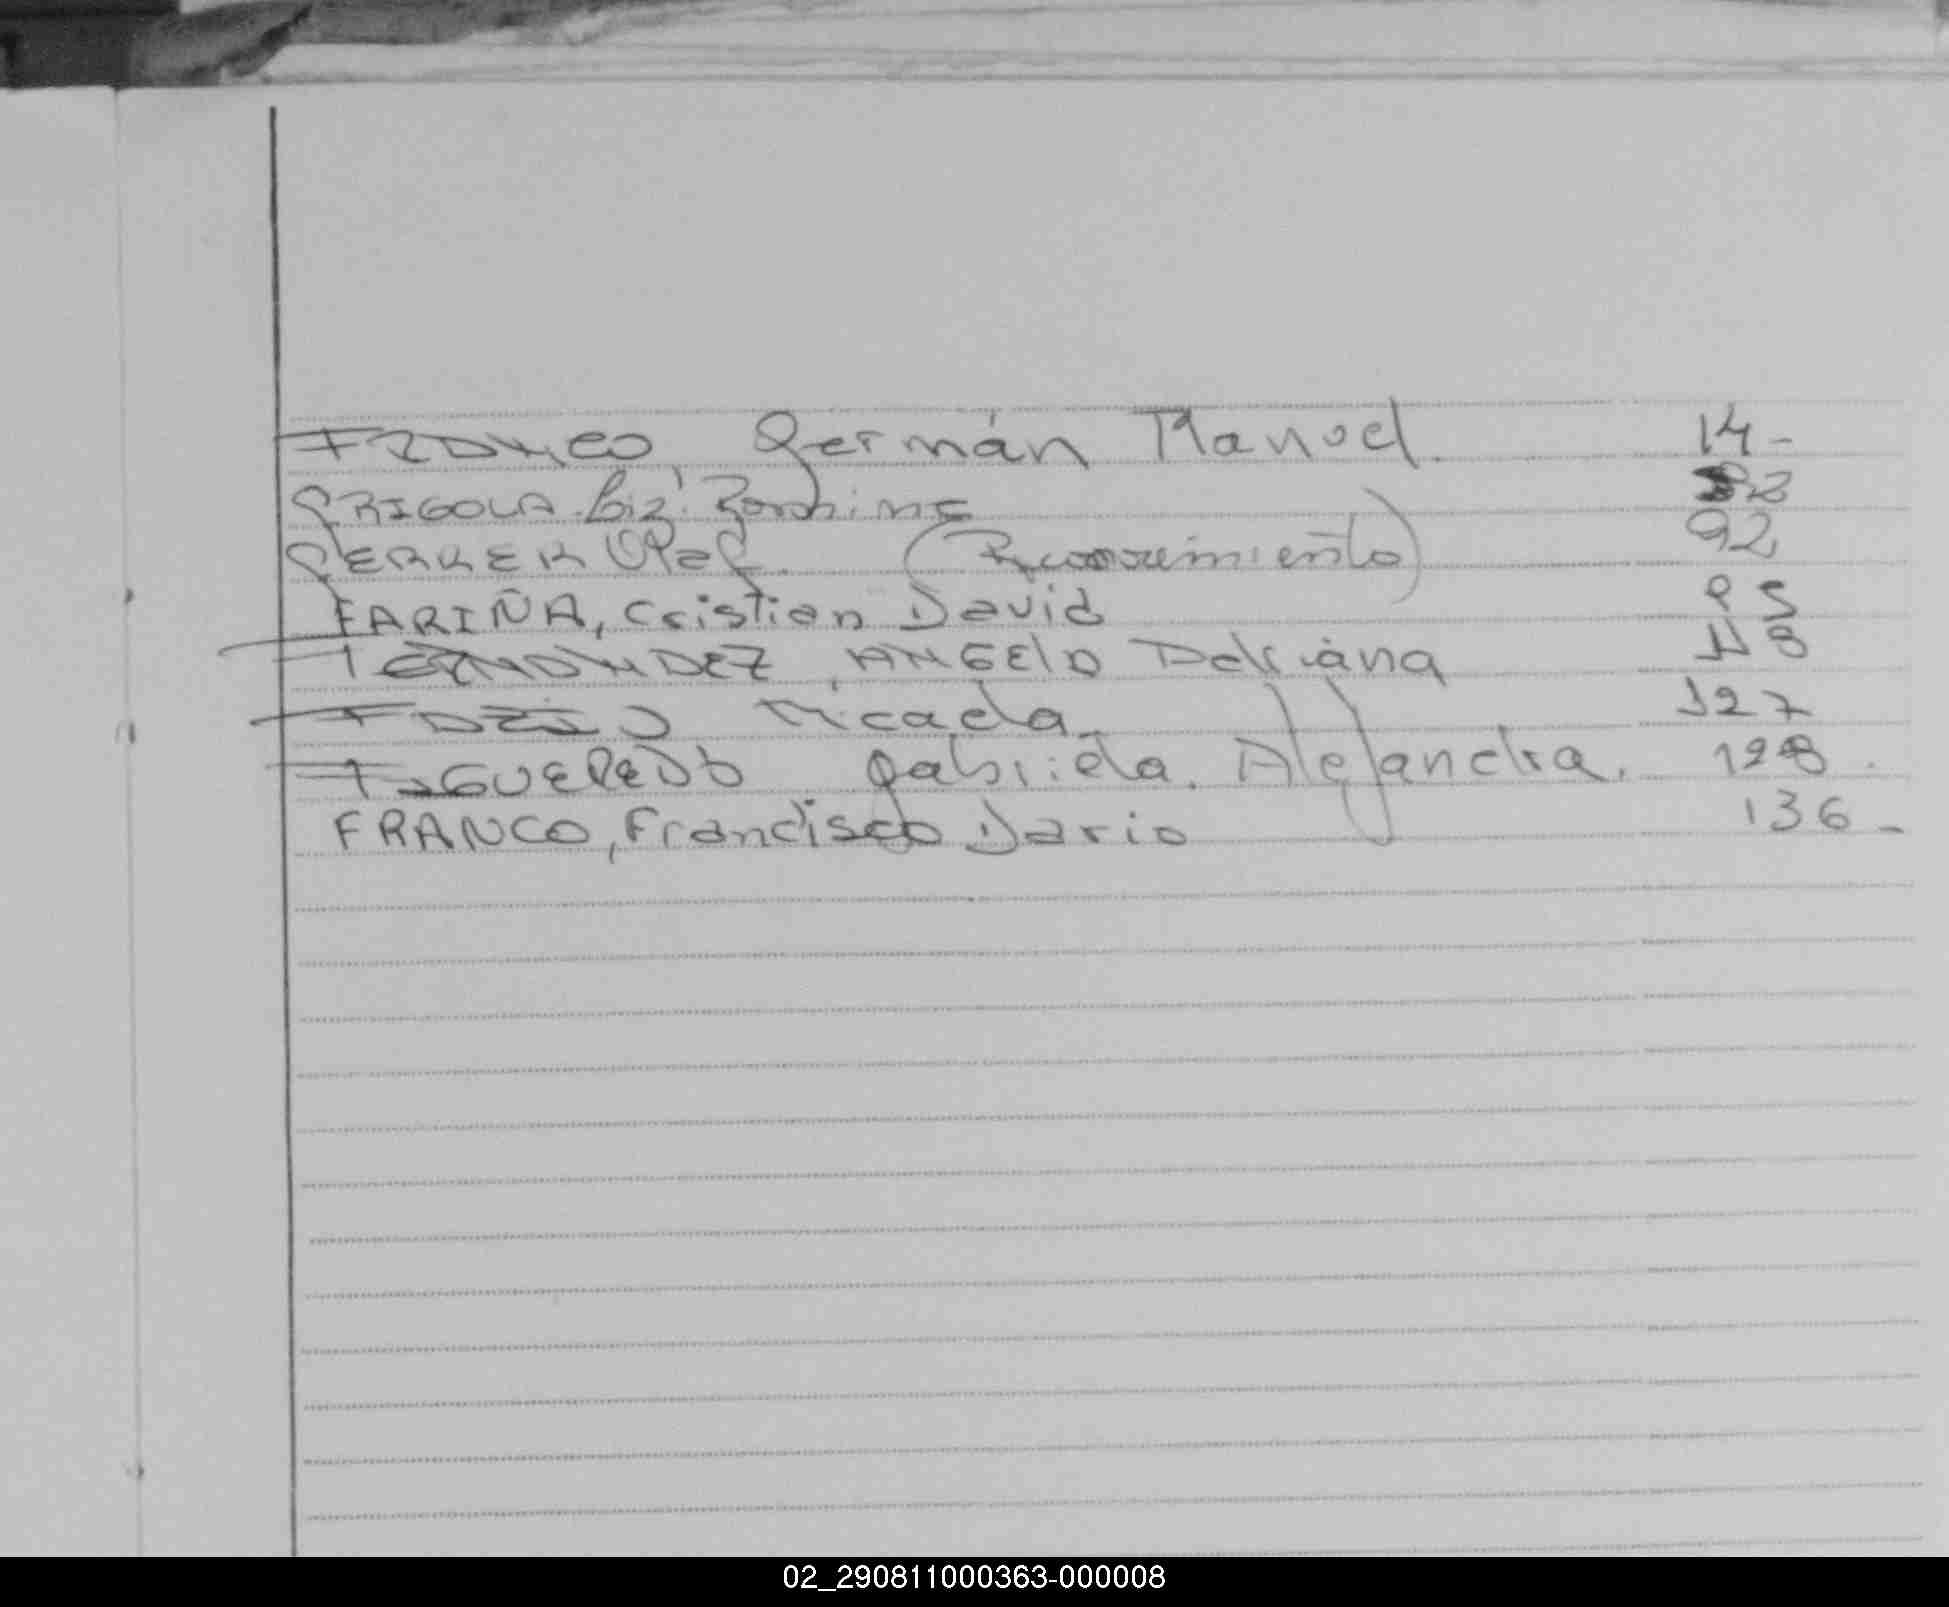 FRANCO, Germán Manuel. 14-
FRIGOLA Liz Romina 82
FERRER Olaf. (Reconocimiento) 92
FARIÑA, Cristian David 95
FERNANDEZ, ANGELA Adriana 118
Micaela 127
FIGUEREDO Gabriela. Alejandra. 128.
FRANCO, Francisco Dario 136-
02_290811000363-000008